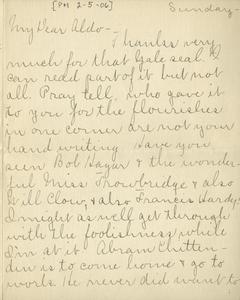 [PM 2-5-06]
Sunday-
My Dear Aldo--
Thanks very
much for that Yale seal. I
can read part of it but not
all. Pray tell, who gave it
to you for the flourishes
in one corner are not your
hand writing Have you
seen Bob Hagar & the wonder-
ful Miss Trowbridge & also
Will Clow, & also Francis Hardy?
I might as well get through
with the foolishness while
I'm at it. Abram Chitten-
din is to come home & go to
work. He never did want to